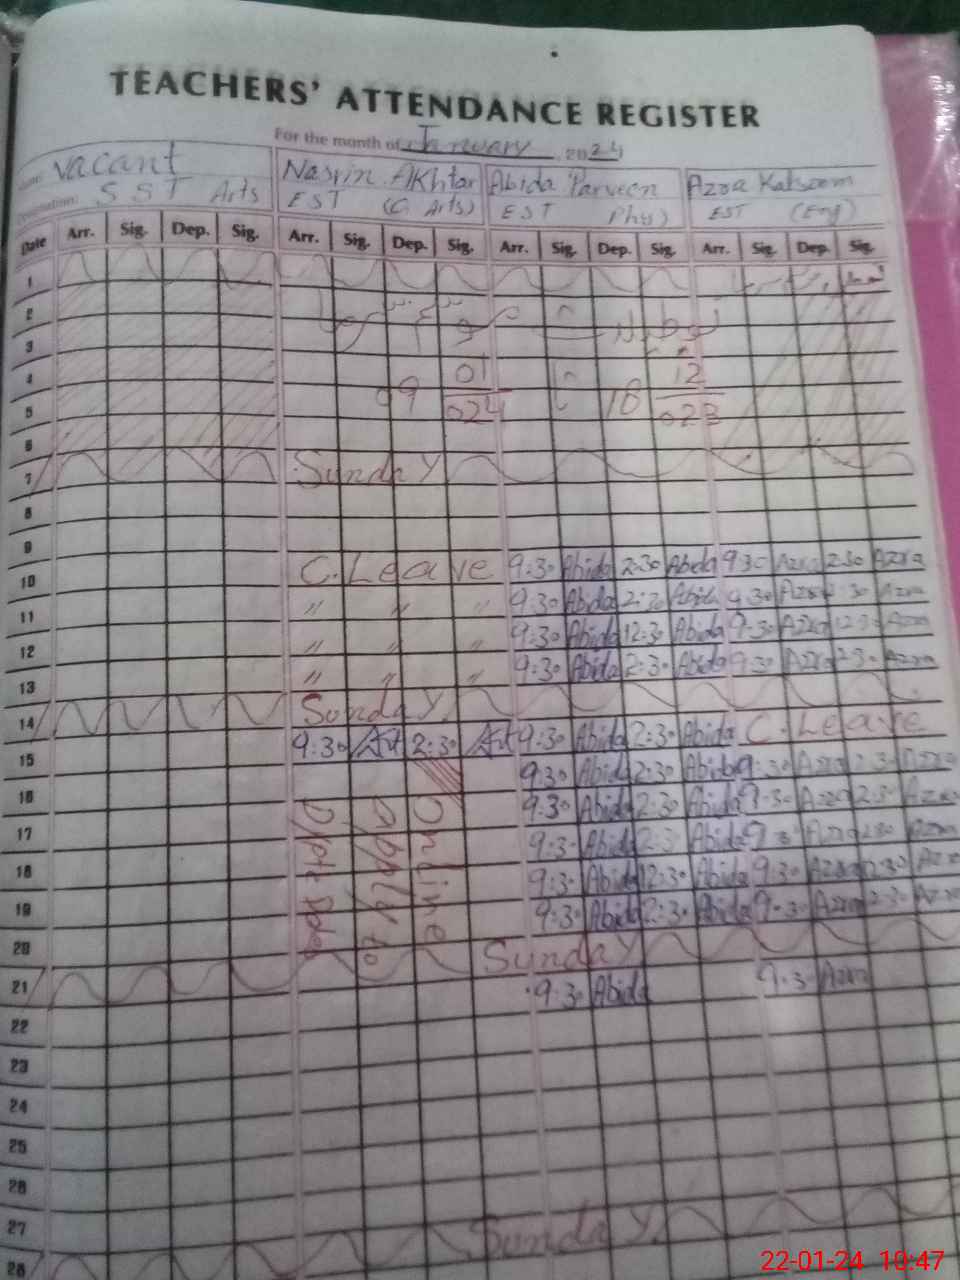 TEACHERS' ATTENDANCE REGISTER
For the month of January 2024
Vacant Nasrin Akhtar Abida Parveen Azra Kalsoom
SST Arts EST (G. Arts) EST Phy) EST (Eng)
Date Arr. Sig. Dep. Sig. Arr. Sig. Dep. Sig. Arr. Sig. Dep. Sig. Arr. Sig. Dep. Sig.
1
2
3
4 01 12
5 09 024 18 023
6
7 Sunday
8
9
10 C. Leave 9:30 Abida 2:30 Abida 9:30 Azra 2:30 Azra
11 " " " 9:30 Abida 2:30 Abida 9:30 Azra 2:30 Azra
12 " " " 9:30 Abida 12:30 Abida 9:30 Azra 12:30 Azra
13 " " " 9:30 Abida 2:30 Abida 9:30 Azra 2:30 Azra
14 Sunday
15 9:30 2:30 9:30 Abida 2:30 Abida C. Leave
16 9:30 Abida 2:30 Abida 9:30 Azra 2:30 Azra
17 9:30 Abida 2:30 Abida 9:30 Azra 2:30 Azra
18 9:30 Abida 2:30 Abida 9:30 Azra 2:30 Azra
19 9:30 Abida 12:30 Abida 9:30 Azra 12:30 Azra
20 9:30 Abida 2:30 Abida 9:30 Azra 2:30 Azra
Online
apply to
21 Sunday
22 9:30 Abida 9:30 Azra
23
24
25
26
27
28 Sunday
22-01-24 10:47